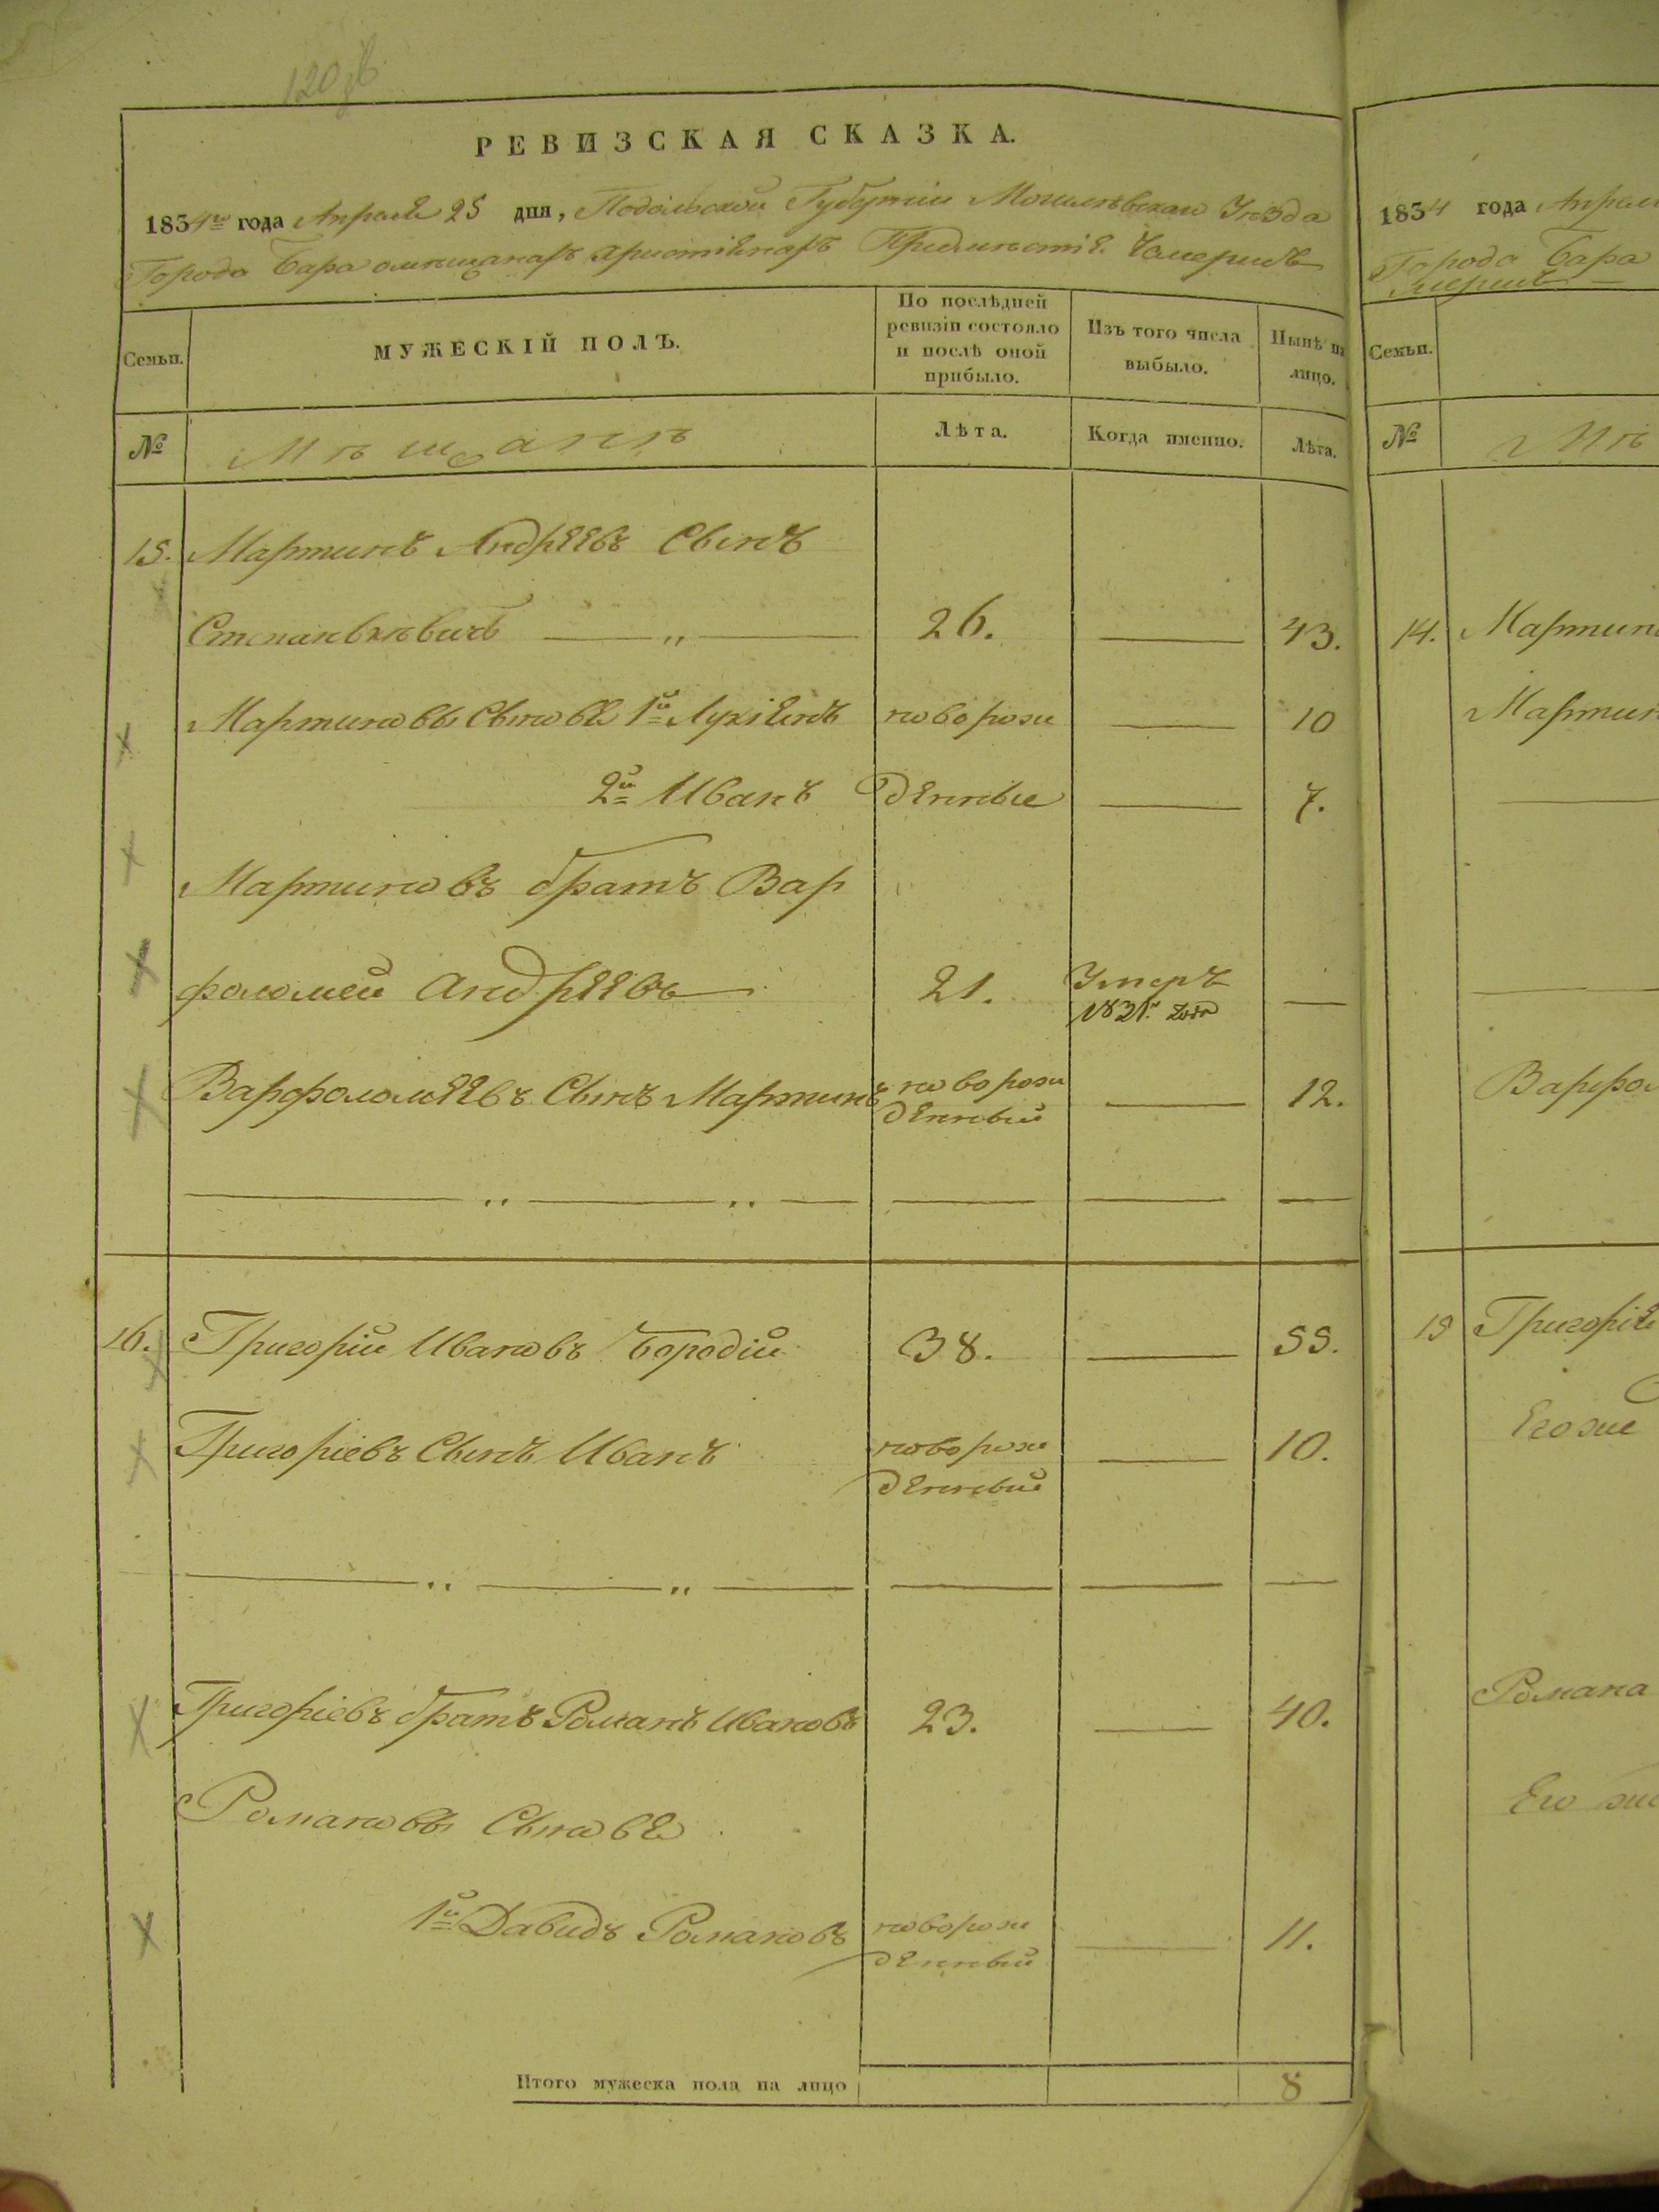 120
РЕВИЗСКАЯ СКАЗКА.
1834го года Апреля 25 дня, Подольской Губерніи Могилѣвскаго Уѣзда
Города Бара омѣщанахъ христіянахъ Предмѣстія Чемерисъ
Семьи.
МУЖЕСКІЙ ПОЛЪ.
По послѣдней ревизіи состояло и послѣ оной прибыло.
Изъ того числа выбыло.
Нынѣ на лицо.
№
Мѣщанѣ
Лѣта.
Когда именно.
Лѣта.
15. Мартинъ Андреевъ Сынъ
Степанъ 26. 43.
Мартиновы Сыновѣя 1й Лукіянъ новорож 10
2й Иванъ денные 7.
Мартиновъ братъ Вар
фоломей Андреевъ 21. Умеръ 1831го года
Варфоломеевъ Сынъ Мартинъ новорож денный 12.
16. Григорій Ивановъ Бородій 38. 55.
Григоріевъ Сынъ Иванъ новорож денный 10.
Григоріевъ братъ Романъ Ивановъ 23. 40.
Романовы Сыновѣя
1й Давидъ Романовъ новорож денный 11.
Итого мужеска пола на лицо 8
1834 года Апрел
Города Бара
Семьи.
№
Мѣ
14. Мартин
Мартин
Варфол
15 Григорія
Его же
Романа
Его же